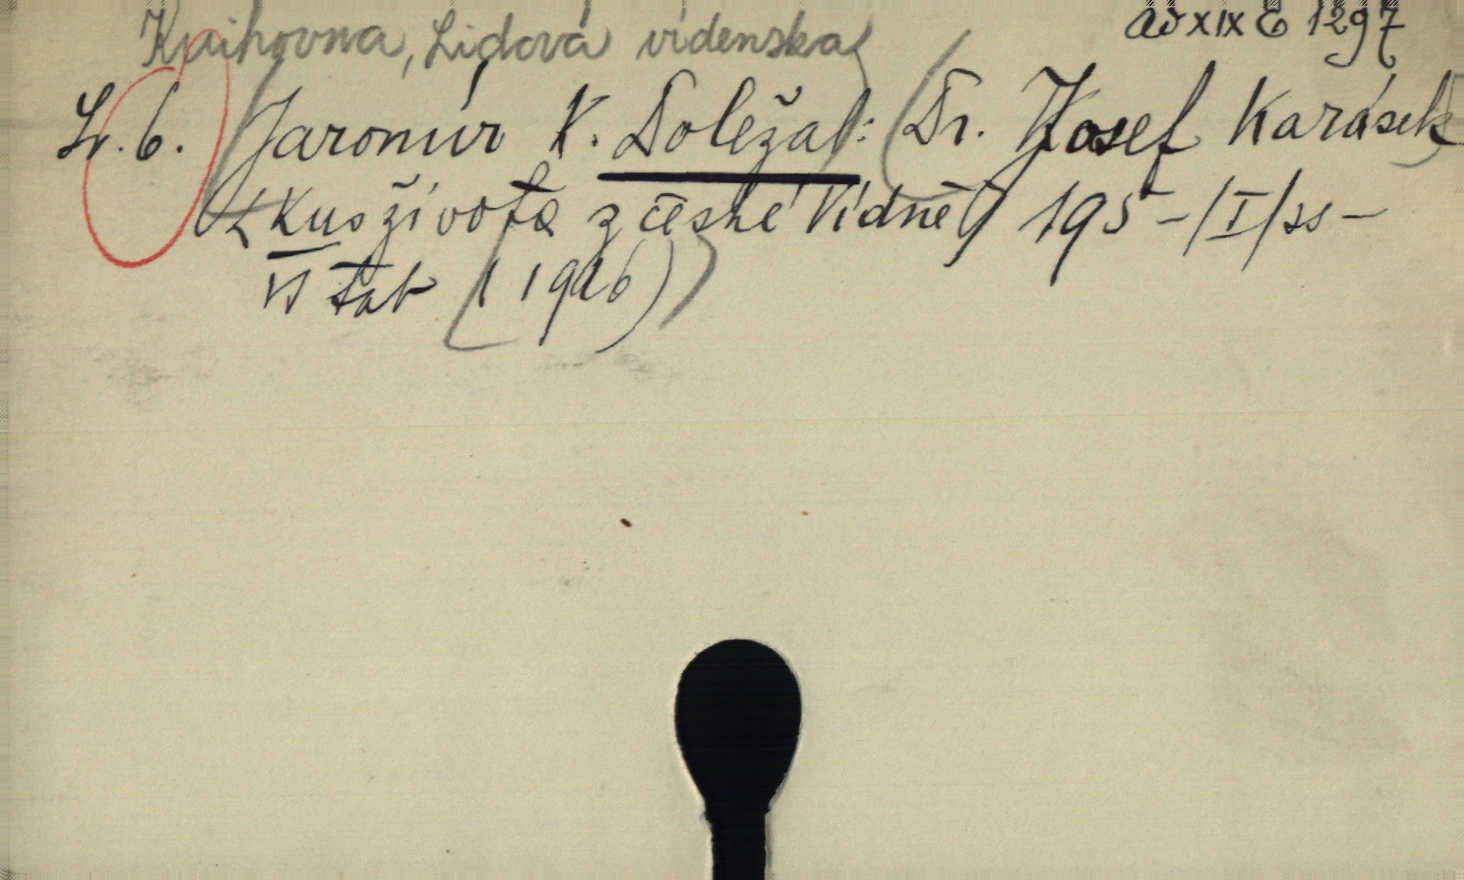 Knihovna, Lidová vídenska
ad XIX E 1297
Sv. 6. Jaromír K. Doležal: Dr. Josef Karásek
Kus života z české Vídně 195 - /I/ ss -
VI tab (1926)